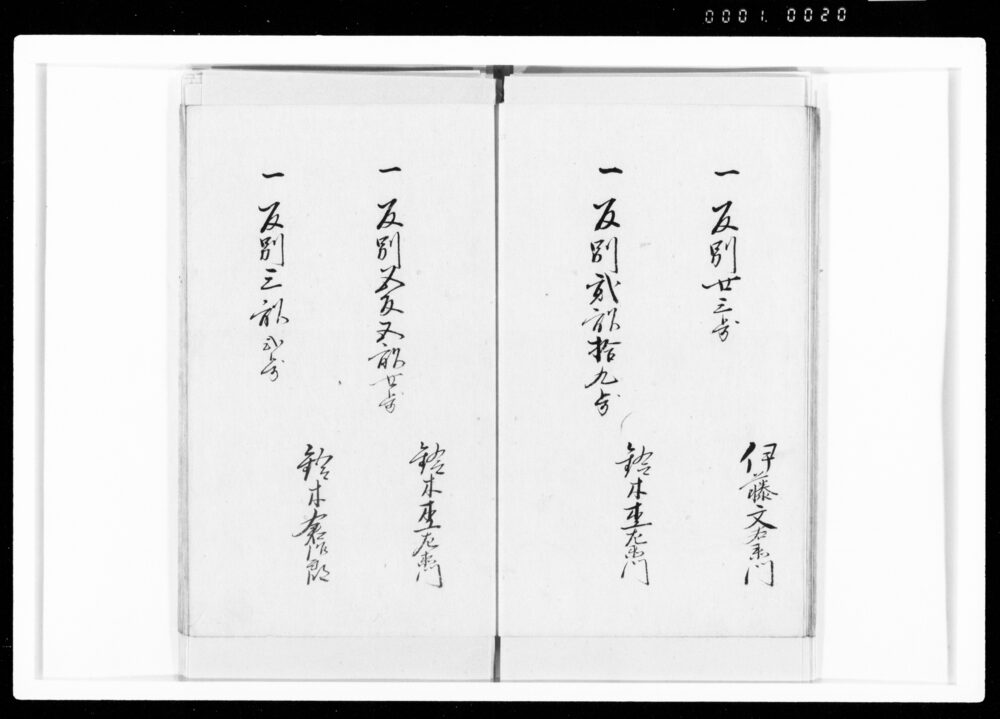 0001. 0020
一 反別廿三歩
伊藤文右衛門
一 反別貳畝拾九歩
鈴木杢左衛門
一 反別五反五畝廿歩
鈴木杢左衛門
一 反別三畝弐歩
鈴木